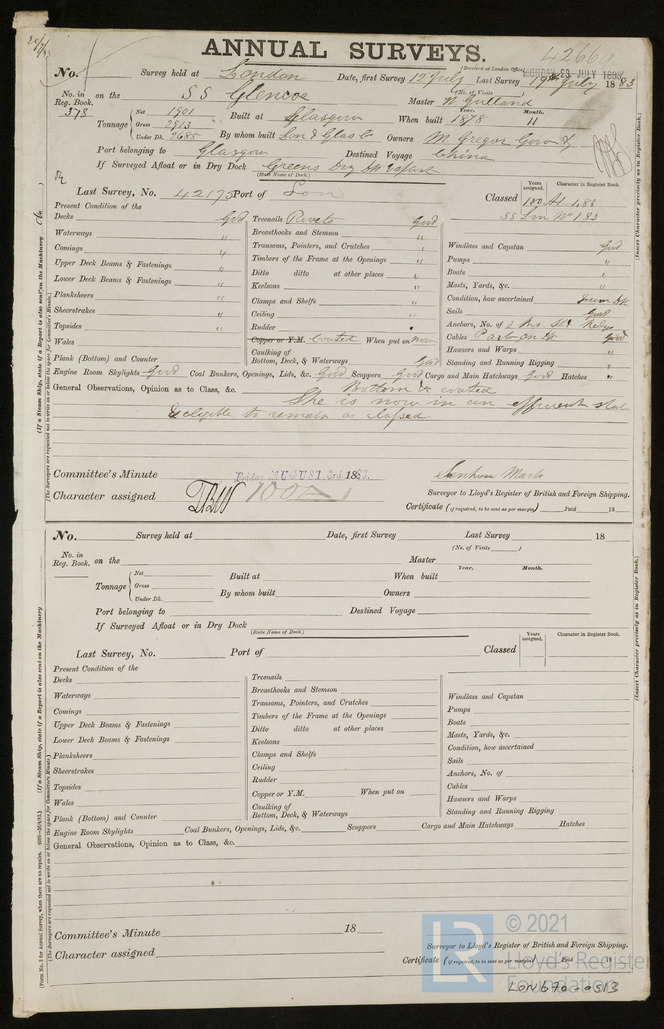 ANNUAL SURVEYS.
42660
(Received at London Office
No. Survey held at London Date, first Survey 12 July Last Survey 19th July 1883
(No. of Visits)
No. in Reg. Book. on the SS Glencoe Master W Gulland
378
Tonnage Net 1901 Built at Glasgow When built 1878 Year. 11 Month.
Gross 2913
Under Dk. 2685 By whom built Lon & Glas Co Owners McGregor Gow &
Port belonging to Glasgow Destined Voyage China
If Surveyed Afloat or in Dry Dock Greens Dry Dk
(State Name of Dock.)
Last Survey, No. 42175 Port of Lon Classed Years assigned. 100 A1 Character in Register Book.
SS Lon No 1 83
Present Condition of the
Decks Good Treenails Rivets Good
Waterways " Breasthooks and Stemson " Windlass and Capstan Good
Comings " Transoms, Pointers, and Crutches " Pumps "
Upper Deck Beams & Fastenings " Timbers of the Frame at the Openings " Boats "
Lower Deck Beams & Fastenings " Ditto ditto at other places " Masts, Yards, &c. "
Planksheers " Keelsons " Condition, how ascertained from Dk
Sheerstrakes " Clamps and Shelfs " Sails Good
Topsides " Ceiling " Anchors, No. of
Wales Rudder " Cables Good
Copper or Y.M. Coated When put on Now
Plank (Bottom) and Counter Caulking of Bottom, Deck, & Waterways Good Hawsers and Warps "
Standing and Running Rigging "
Engine Room Skylights Good Coal Bunkers, Openings, Lids, &c. Good Scuppers Good Cargo and Main Hatchways Good Hatches "
General Observations, Opinion as to Class, &c. Bottom coated
She is now in an efficient state
& eligible to remain as classed
Committee's Minute Friday AUGUST 3rd 1883.
Character assigned 100A1
Surveyor to Lloyd's Register of British and Foreign Shipping.
Certificate (if required, to be sent as per margin) Paid 18
No. Survey held at Date, first Survey Last Survey 18
(No. of Visits )
No. in Reg. Book. on the Master
Year. Month.
Tonnage Net Built at When built
Gross
Under Dk. By whom built Owners
Port belonging to Destined Voyage
If Surveyed Afloat or in Dry Dock
(State Name of Dock.)
Last Survey, No. Port of Classed Years assigned. Character in Register Book.
Present Condition of the
Decks Treenails
Waterways Breasthooks and Stemson Windlass and Capstan
Comings Transoms, Pointers, and Crutches Pumps
Upper Deck Beams & Fastenings Timbers of the Frame at the Openings Boats
Lower Deck Beams & Fastenings Ditto ditto at other places Masts, Yards, &c.
Planksheers Keelsons Condition, how ascertained
Sheerstrakes Clamps and Shelfs Sails
Topsides Ceiling Anchors, No. of
Wales Rudder Cables
Plank (Bottom) and Counter Copper or Y.M. When put on Hawsers and Warps
Caulking of Bottom, Deck, & Waterways Standing and Running Rigging
Engine Room Skylights Coal Bunkers, Openings, Lids, &c. Scuppers Cargo and Main Hatchways Hatches
General Observations, Opinion as to Class, &c.
Committee's Minute 18
Character assigned
Surveyor to Lloyd's Register of British and Foreign Shipping.
Certificate (if required, to be sent as per margin) Paid 18
LR
© 2021
Lloyd's Register
Foundation
LON 670-0513
(Insert Character precisely as in Register Book.)
(Insert Character precisely as in Register Book.)
(If a Steam Ship, state if a Report is also sent on the Machinery
(The Surveyors are requested not to write on or below the space for Committee's Minute.)